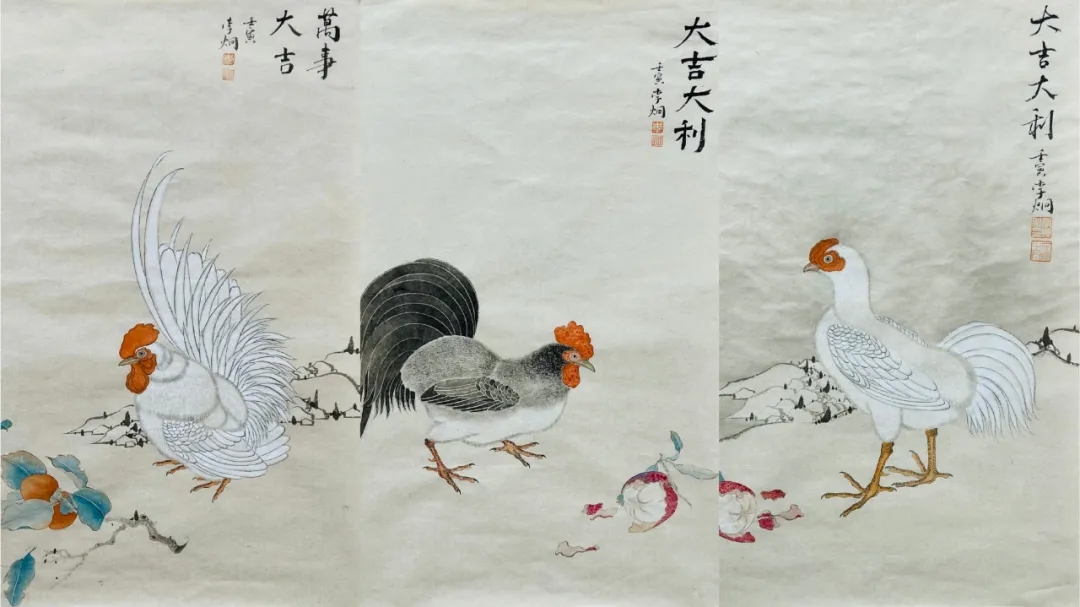 萬事
大吉
壬寅
李炯
大吉大利
壬寅李炯
大吉大利
壬寅李炯